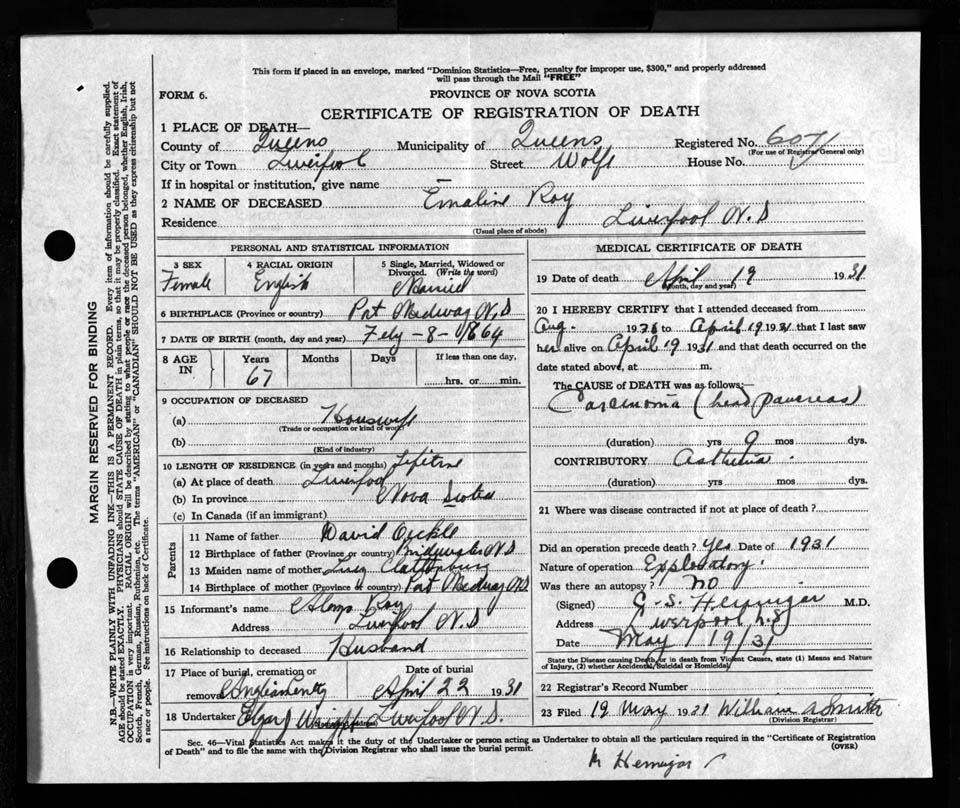 This form if placed in an envelope, marked "Dominion Statistics—Free, penalty for improper use, $300," and properly addressed
will pass through the Mail "FREE"
FORM 6.
PROVINCE OF NOVA SCOTIA
CERTIFICATE OF REGISTRATION OF DEATH
1 PLACE OF DEATH—
County of Queens Municipality of Queens Registered No.
(For use of Registrar General only)
City or Town Liverpool Street Wolfe House No.
If in hospital or institution, give name —
2 NAME OF DECEASED Emaline Roy
Residence Liverpool N.S
(Usual place of abode)
PERSONAL AND STATISTICAL INFORMATION
3 SEX 4 RACIAL ORIGIN 5 Single, Married, Widowed or
Divorced. (Write the word)
Female English Married
6 BIRTHPLACE (Province or country) Port Medway N.S
7 DATE OF BIRTH (month, day and year) Feby - 8 - 1864
8 AGE IN Years Months Days If less than one day,
67 hrs. or min.
9 OCCUPATION OF DECEASED
(a) Housewife
(Trade or occupation or kind of work)
(b)
(Kind of industry)
10 LENGTH OF RESIDENCE (in years and months) Lifetime
(a) At place of death Liverpool
(b) In province Nova Scotia
(c) In Canada (if an immigrant)
Parents
11 Name of father David
12 Birthplace of father (Province or country) Bridgewater N.S
13 Maiden name of mother Lucy
14 Birthplace of mother (Province or country) Port Medway N.S.
15 Informant's name Roy
Address Liverpool N.S
16 Relationship to deceased Husband
17 Place of burial, cremation or Date of burial
removal April 22 1931
18 Undertaker Liverpool N.S.
MEDICAL CERTIFICATE OF DEATH
19 Date of death April 19 1931
(Month, day and year)
20 I HEREBY CERTIFY that I attended deceased from
Aug. 19 to April 19 1931 that I last saw
her alive on April 19 1931 and that death occurred on the
date stated above, at m.
The CAUSE of DEATH was as follows:—
Carcinoma (head pancreas)
(duration) yrs 9 mos dys.
CONTRIBUTORY Asthenia.
(duration) yrs mos dys.
21 Where was disease contracted if not at place of death?
Did an operation precede death? Yes Date of 1931
Nature of operation Exploratory.
Was there an autopsy? No
(Signed) M.D.
Address Liverpool N.S.
Date May 19/31
State the Disease causing Death or in death from Violent Causes, state (1) Means and Nature
of Injury, (2) whether Accidental, Suicidal or Homicidal
22 Registrar's Record Number
23 Filed 19 May 1931 William A Smith
(Division Registrar)
Sec. 46—Vital Statistics Act makes it the duty of the Undertaker or person acting as Undertaker to obtain all the particulars required in the "Certificate of Registration
of Death" and to file the same with the Division Registrar who shall issue the burial permit.
(OVER)
MARGIN RESERVED FOR BINDING
N.B.—WRITE PLAINLY WITH UNFADING INK—THIS IS A PERMANENT RECORD. Every item of information should be carefully supplied.
AGE should be stated EXACTLY. PHYSICIANS should STATE CAUSE OF DEATH in plain terms, so that it may be properly classified. Exact statement of
OCCUPATION is very important. RACIAL ORIGIN will be described by stating to what people or race the deceased person belonged, whether English, Irish,
Scotch, French, German, Russian, Ruthenian, etc. The terms "AMERICAN" or "CANADIAN" SHOULD NOT BE USED as they express citizenship but not
a race or people. See instructions on back of Certificate.